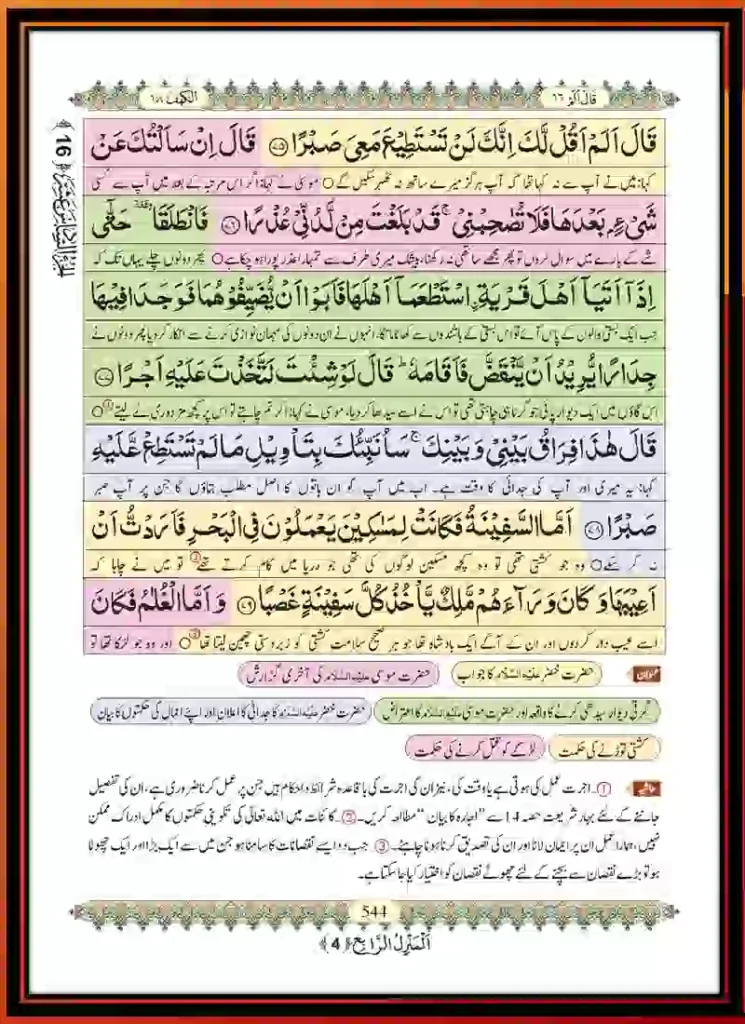 قال الم ١٦
الکهف ١٨
قَالَ اَلَمْ اَقُلْ لَّكَ اِنَّكَ لَنْ تَسْتَطِیْعَ مَعِیَ صَبْرًا ﴿۷۵﴾ قَالَ اِنْ سَاَلْتُكَ عَنْ
کہا: میں نے آپ سے نہ کہا تھا کہ آپ ہرگز میرے ساتھ نہ ٹھہر سکیں گے ○ موسیٰ نے کہا: اگر اس مرتبہ کے بعد میں آپ سے کسی
شَیْءٍۭ بَعْدَهَا فَلَا تُصٰحِبْنِیْ ۚ قَدْ بَلَغْتَ مِنْ لَّدُنِّیْ عُذْرًا ﴿۷۶﴾ فَانْطَلَقَا ۥ حَتّٰۤی
شے کے بارے میں سوال کروں تو پھر مجھے ساتھی نہ رکھنا، بیشک میری طرف سے تمہارا عذر پورا ہو چکا ہے ○ پھر دونوں چلے یہاں تک کہ
اِذَاۤ اَتَیَاۤ اَهْلَ قَرْیَةِ ﹰاسْتَطْعَمَاۤ اَهْلَهَا فَاَبَوْا اَنْ یُّضَیِّفُوْهُمَا فَوَجَدَا فِیْهَا
جب ایک بستی والوں کے پاس آئے تو اس بستی کے باشندوں سے کھانا مانگا، انہوں نے ان دونوں کی مہمان نوازی کرنے سے انکار کر دیا پھر دونوں نے
جِدَارًا یُّرِیْدُ اَنْ یَّنْقَضَّ فَاَقَامَهٗ ؕ قَالَ لَوْ شِئْتَ لَتَّخَذْتَ عَلَیْهِ اَجْرًا ﴿۷۷﴾
اس گاؤں میں ایک دیوار پائی جو گرنا ہی چاہتی تھی تو اس نے اسے سیدھا کر دیا، موسیٰ نے کہا: اگر تم چاہتے تو اس پر کچھ مزدوری لے لیتے ○①
قَالَ هٰذَا فِرَاقُ بَیْنِیْ وَ بَیْنِكَ ۚ سَاُنَبِّئُكَ بِتَاْوِیْلِ مَا لَمْ تَسْتَطِعْ عَّلَیْهِ
کہا: یہ میری اور آپ کی جدائی کا وقت ہے۔ اب میں آپ کو ان باتوں کا اصل مطلب بتاؤں گا جن پر آپ صبر
صَبْرًا ﴿۷۸﴾ اَمَّا السَّفِیْنَةُ فَكَانَتْ لِمَسٰكِیْنَ یَعْمَلُوْنَ فِی الْبَحْرِ فَاَرَدْتُّ اَنْ
نہ کر سکے ○ وہ جو کشتی تھی تو وہ کچھ مسکین لوگوں کی تھی جو دریا میں کام کرتے تھے② تو میں نے چاہا کہ
اَعِیْبَهَا وَ كَانَ وَرَآءَهُمْ مَّلِكٌ یَّاْخُذُ كُلَّ سَفِیْنَةٍ غَصْبًا ﴿۷۹﴾ وَ اَمَّا الْغُلٰمُ فَكَانَ
اسے عیب دار کر دوں اور ان کے آگے ایک بادشاہ تھا جو ہر صحیح سلامت کشتی کو زبردستی چھین لیتا تھا ○③ اور وہ جو لڑکا تھا تو
عنوان حضرت خضر علیہ السّلام کا جواب حضرت موسیٰ علیہ السّلام کی آخری گزارش
گرتی دیوار سیدھی کرنے کا واقعہ اور حضرت موسیٰ علیہ السّلام کا اعتراض حضرت خضر علیہ السّلام کا جدائی کا اعلان اور اپنے افعال کی حکمتوں کا بیان
کشتی توڑنے کی حکمت لڑکے کو قتل کرنے کی حکمت
حاشیہ ①۔ اجرت عمل کی ہوتی ہے یا وقت کی، نیز ان کی اجرت کی باقاعدہ شرائط و احکام ہیں جن پر عمل کرنا ضروری ہے، ان کی تفصیل
جاننے کے لئے بہار شریعت حصہ 14 سے "اجارہ کا بیان" مطالعہ کریں۔ ②۔ کائنات میں اللہ تعالیٰ کی تکوینی حکمتوں کا مکمل ادراک ممکن
نہیں، ہمارا عمل ان پر ایمان لانا اور ان کی تصدیق کرنا ہونا چاہئے۔ ③۔ جب دو ایسے نقصانات کا سامنا ہو جن میں سے ایک بڑا اور ایک چھوٹا
ہو تو بڑے نقصان سے بچنے کے لئے چھوٹے نقصان کو اختیار کیا جا سکتا ہے۔
544
اَلْمَنْزِلُ الرَّابِعُ ﴿4﴾